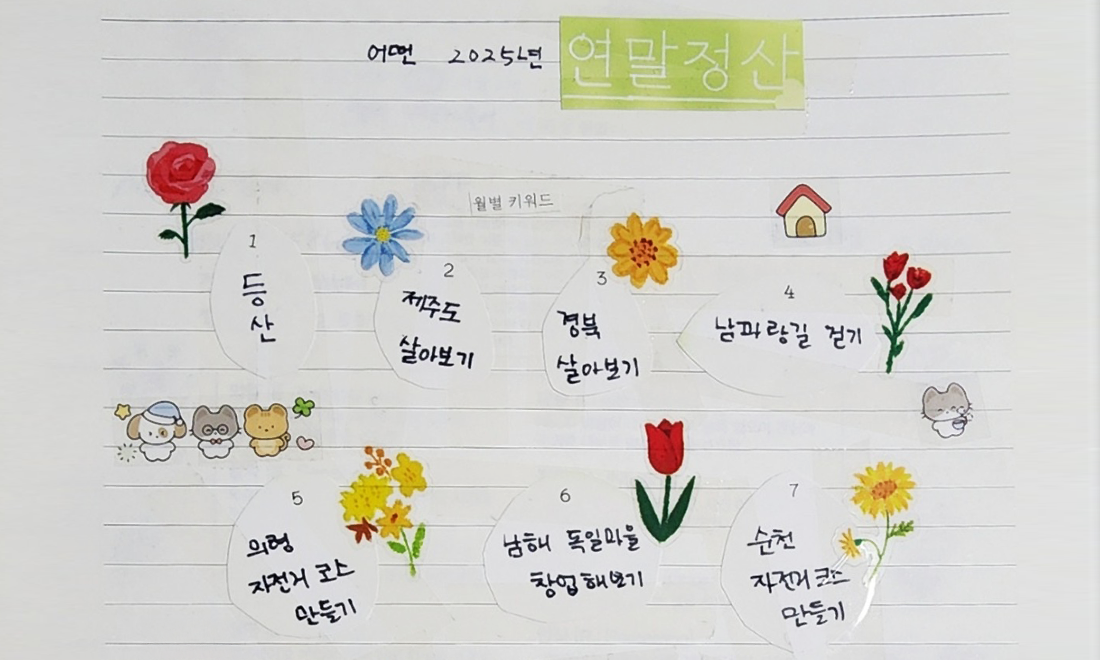 어떤 2025년 연말정산
월별 키워드
1
등
산
2
제주도
살아보기
3
경북
살아보기
4
남파랑길 걷기
5
의령
자전거 코스
만들기
6
남해 독일마을
창업해보기
7
순천
자전거 코스
만들기